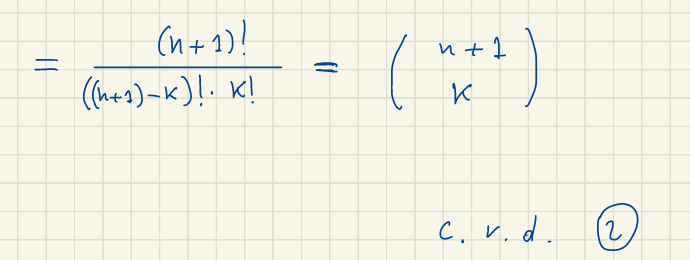 = (n+1)! / ((n+1)-k)! · k! = ( n+1 k )
c. v. d. 2